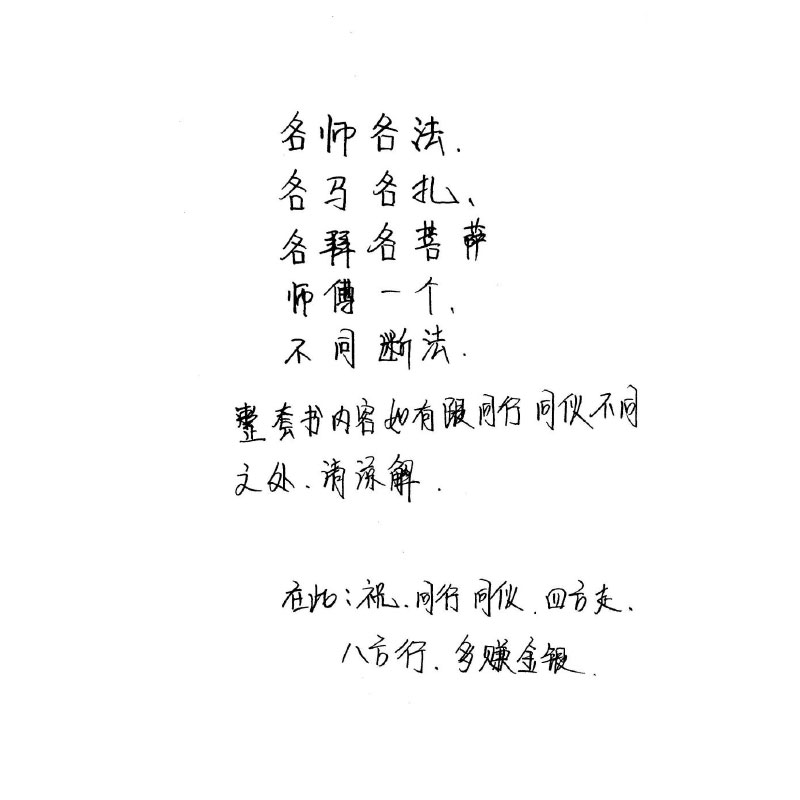 各师各法.
各马各扎、
各拜各菩萨
师傅一个,
不同断法.
整套书内容如有跟同行同仪不同
之处、请谅解.
在此:祝、同行同仪、四方走、
八方行、多赚金银.